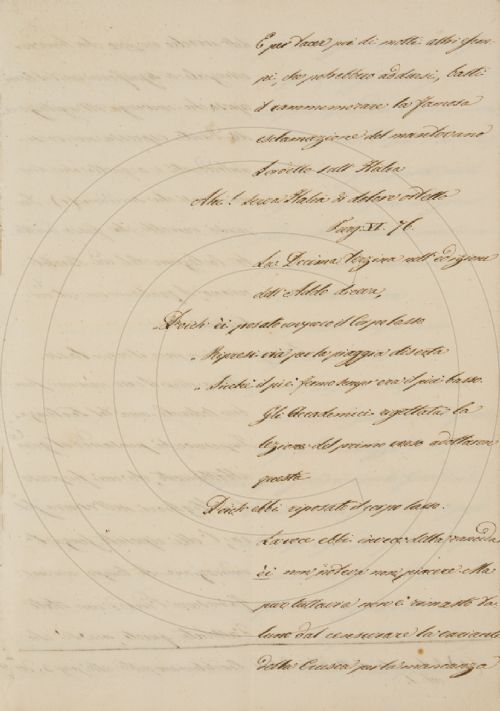 E per tacer poi di molti altri esem-
pi, che potrebbero addursi, basti
il rammemorare la famosa
esclamazione del mantovano
Sordello sull' Italia
Ahi! serva Italia di dolore ostello
Purg. VI. 76.
La Decima terzina nell' edizione
dell' Aldo diceva,
Poich' èi posato un poco il corpo lasso
Ripresi via per la piaggia diserta
Sicché il piè fermo sempre era il più basso.
Gli Accademici rigettata la
lezione del primo verso adottarono
questa
Poich' ebbi riposato il corpo lasso.
La voce ebbi invece della rancida
èi non potea non piacere. Ma
pur tuttavia non è rimasto ta-
luno dal censurare la lezione
della Crusca per la mancanza